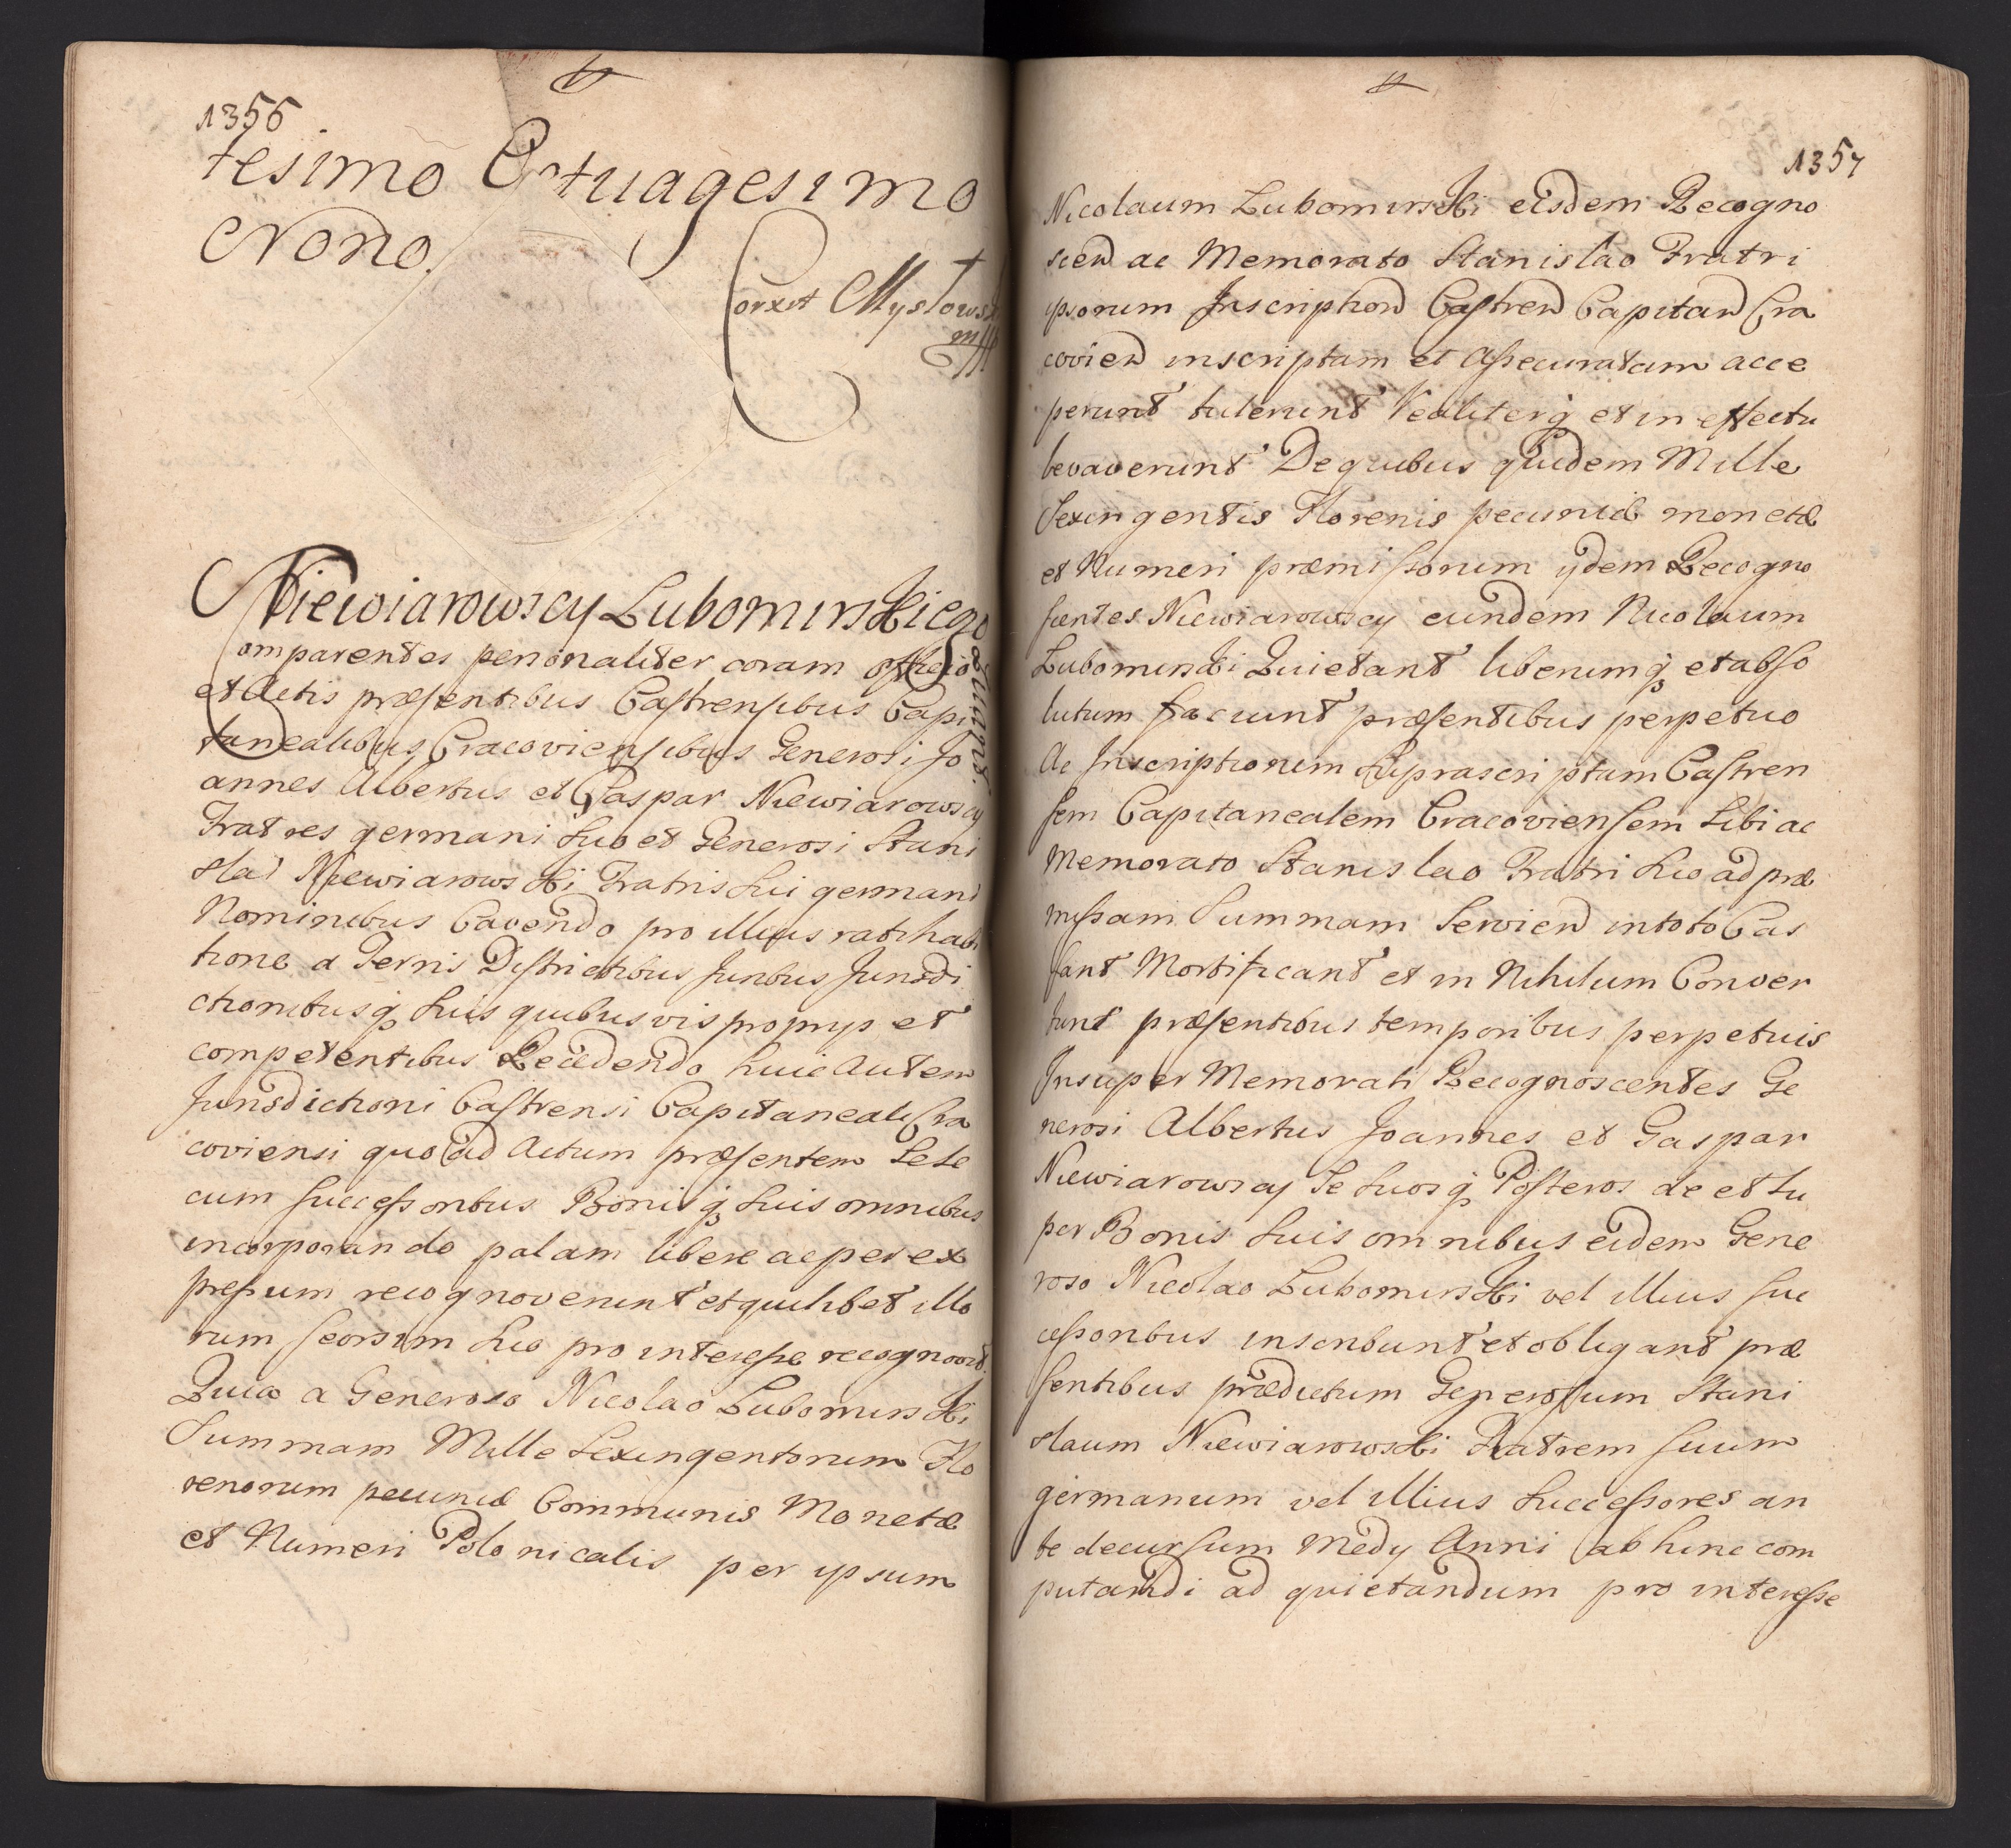 1356
tesimo Octuagesimo
Nono.
Corxit Mystowsk
mpp
Niewiarowscy Lubomirskiego
quittant
Comparentes personaliter coram officio
et Actis præsentibus Castrensibus Capi
tanealibus Cracoviensibus Generosi Jo
annes Albertus et Gaspar Niewiarowscy
Fratres germani suo et Generosi Stani
slai Niewiarowski Fratris sui germani
Nominibus Cavendo pro illius ratihabi
tione a Terris Districtibus Juribus Jurisdi
ctionibusq suis quibusvis proprijs et
competentibus Recedendo huic autem
Jurisdictioni Castrensi Capitaneali Cra
coviensi quo ad Actum præsentem Sese
cum successoribus Bonisq suis omnibus
incorporando palam libere ac per ex
pressum recognoverunt et quilibet illo
rum seorsim suo pro interesse recognovit
Quia a Generoso Nicolao Lubomirski
Summam Mille Sexingentorum Flo
renorum pecuniæ Communis Monetæ
et Numeri Polonicalis per ipsum
1357
Nicolaum Lubomirski eisdem Recogno
scen ac Memorato Stanislao Fratri
ipsorum Inscription Castren Capitan Cra
covien inscriptam et assecuratam acce
perunt tulerunt realiterq et in effectu
levaverunt De quibus quidem Mille
Sexingentis Florenis pecuniæ monetæ
et Numeri præmissorum ijdem Recogno
scentes Niewiarowscy eundem Nicolaum
Lubomirski Quietant liberumq et abso
lutum faciunt præsentibus perpetuo
Ac Inscriptionem suprascriptam Castren
sem Capitanealem Cracoviensem Sibi ac
Memorato Stanislao Fratri suo ad præ
missam Summam Servien in toto Cas
sant Mortificant et in Nihilum Conver
tunt præsentibus temporibus perpetuis
Insuper Memorati Recognoscentes Ge
nerosi Albertus Joannes et Gaspar
Niewiarowscy Se suosq Posteros de et su
per Bonis suis omnibus eidem Gene
roso Nicolao Lubomirski vel illius suc
cessoribus inscribunt et obligant præ
sentibus prædictum Generosum Stani
slaum Niewiarowski Fratrem suum
germanum vel illius successores an
te decursum Medij Anni ab hinc com
putandi ad quietandum pro interesse